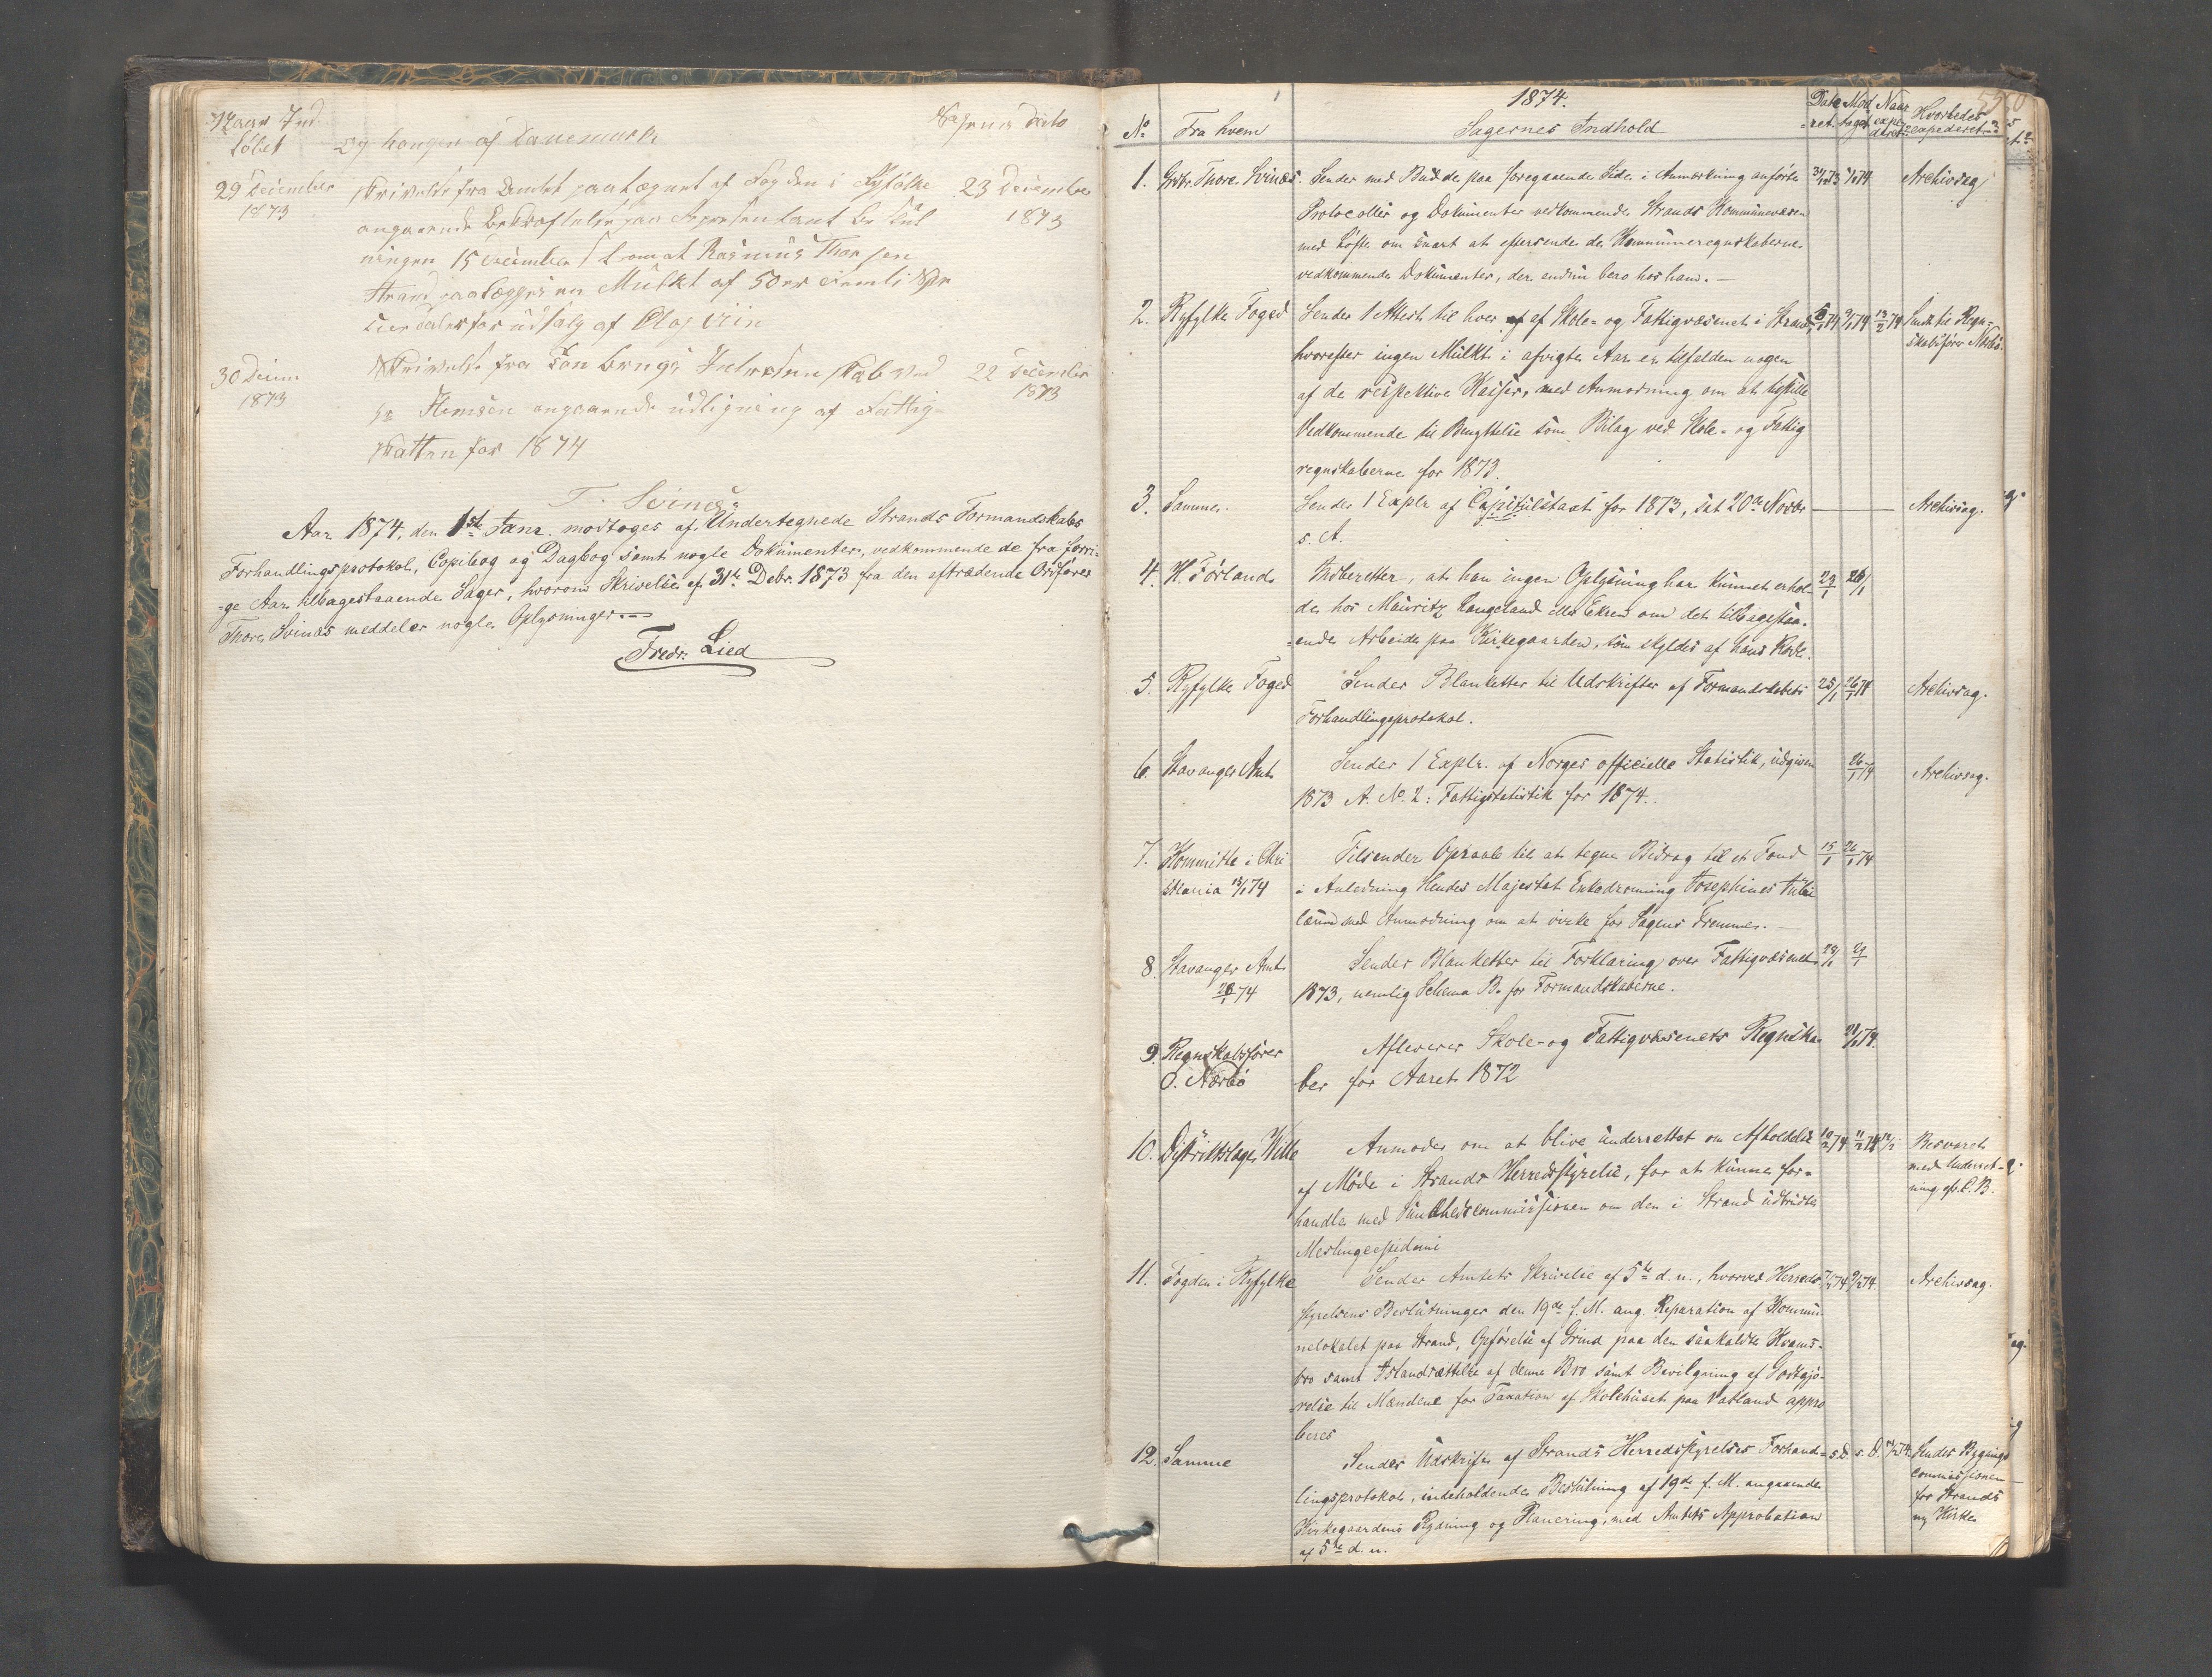 Naar Ind
løbet
og hongen af Danemark
Sagens dato
29 December
1873
Skrivelse fra Amtet paategnet af Fogden i Ryfølke
23 December
1873
angaaende Bekræftelse paa Representant beslut
ningen 15 December om at Rasmus Thorsen
Strand paalægges en Mulkt af 50
for udsalg af
30 Decem
1873
Skrivelse fra
22 December
1873
angaaende udligning af Fattig-
skatten for 1874
T. Svines
Aar 1874, den 1ste Janr. modtoges af Undertegnede Strands Formandskabs
Forhandlingsprotokol, Copibog og Dagbog samt nogle Dokumenter, vedkommende de fra forri-
-ge Aar tilbagestaaende Sager, hvorom Skrivelse af 31te Debr. 1873 fra den aftrædende Ordfører
Thore Svines meddeler nogle Oplysninger.—
Fredr. Lied
1874.
No
Fra hvem
Sagernes Indhold
Date-
ret.
Mod
taget
Naar
expe-
deret
Hvorledes
expederet
1. Grdbr. Thore Svines. Sender med Bud de paa foregaaende Side i Anmærkning anførte 31/12 73 1/1 74 Archivsag
Protocoller og Dokumenter vedkommende Strands Kommunevæsen
med Løfte om snart at eftersende de Kommuneregnskaberne
vedkommende Dokumenter, der endnu bero hos ham.—
2. Ryfylke Foged Sender 1 Attest til hver af Skole- og Fattigvæsenet i Strand, Sendt til Regn-
hvorefter ingen Mulkt i afvigte Aar er tilfalden nogen skabsfører Nærbø.
af de respektive Kasser, med Anmodning om at tilstille
Vedkommende til Benyttelse som Bilag ved Skole- og Fattig
regnskaberne for 1873.
3. Samme. Sender 1 Explr. af Capitulstaxt for 1873, sat 20de Novbr — Archivsag.
s. A.
4. H. Førland Indberetter, at han ingen Oplysning har kunnet erhol- 23/1 26/1
de hos Mauritz Langeland eller Ekren om det tilbagestaa-
-ende Arbeide paa Kirkegaarden, som skyldes af hans Rode.
5. Ryfylke Foged Sender Blanketter til Udskrifter af Formandskabets 25/1 26/1 74 Archivsag.
Forhandlingsprotokol.
6. Stavanger Amt Sender 1 Explr. af Norges officielle Statistik, udgiven 26/1 74 Archivsag.
1873 A. No. 2: Fattigstatistik for 1874.
7. Kommitte i Chri Tilsender Opraab til at tegne Bidrag til et Fond 15/1 26/1 74
stiania 15/1 74 i Anledning Hendes Majestæt Enkedronning Josephines Jubi
læum med Anmodning om at virke for Sagens Fremme.—
8. Stavanger Amt Sender Blanketter til Forklaring over Fattigvæsenet 28/1 29/1
28/1 74 1873, nemlig Schema B. for Formandskaberne.
9. Regnskabsfører Afleverer Skole- og Fattigvæsenets Regnska
O. Nærbø ber for Aaret 1872
10. Distriktslæge Wille Anmoder om at blive underrettet om Afholdelse 10/2 74 11/2 74 Besvaret
af Møde i Strands Herredsstyrelse, for at kunne for- med Underret-
handle med Sundhedscommissionen om den i Strand udbrudte ning, cfr. C. B.
Meslingeepidemi
11. Fogden i Ryfylke Sender Amtets Skrivelse af 5te d. m., hvorved Herreds 7/2 74 9/2 74. Archivsag.
styrelsens Beslutninger den 19de f. M. ang. Reparation af Kommu
nelokalet paa Strand, Opførelse af Grind paa den saakaldte Kvams-
bro samt Istandsættelse af denne Bro samt Bevilgning af Godtgjø-
-relse til Mændene for Taxation af Skolehuset paa Vatland appro
beres
12. Samme Sender Udskrift af Strands Herredsstyrelses Forhand- s. D. s. D. Sendes Bygnings
lingsprotokol, indeholdende Beslutning af 19de f. M. angaaende commissionen
Kirkegaardens Rydning og Planering, med Amtets Approbation for Strands
af 5te d. m. ny Kirke